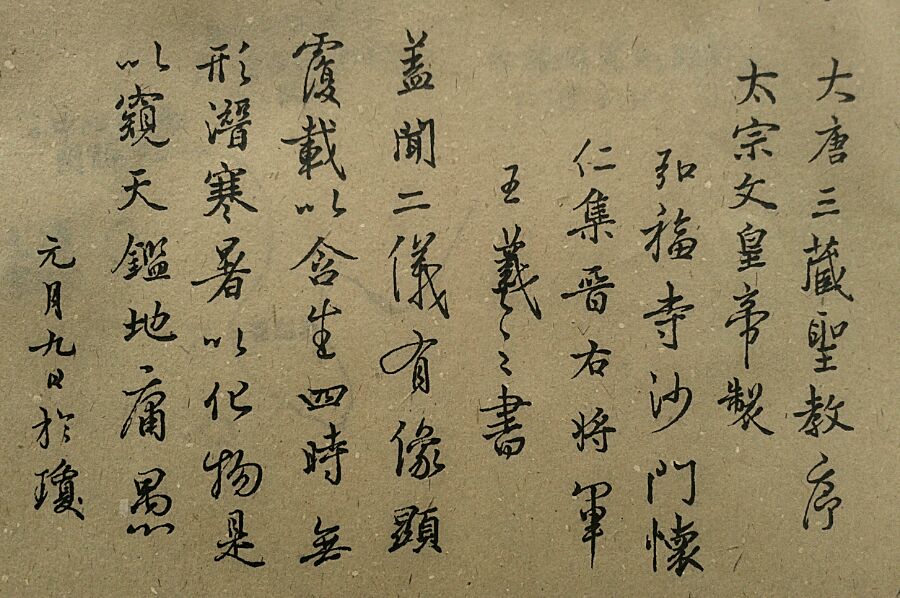 大唐三藏聖教序
太宗文皇帝製
弘福寺沙門懷
仁集晉右將軍
王羲之書
蓋聞二儀有像顯
覆載以含生四時無
形潛寒暑以化物是
以窺天鑑地庸愚
元月九日於瓊